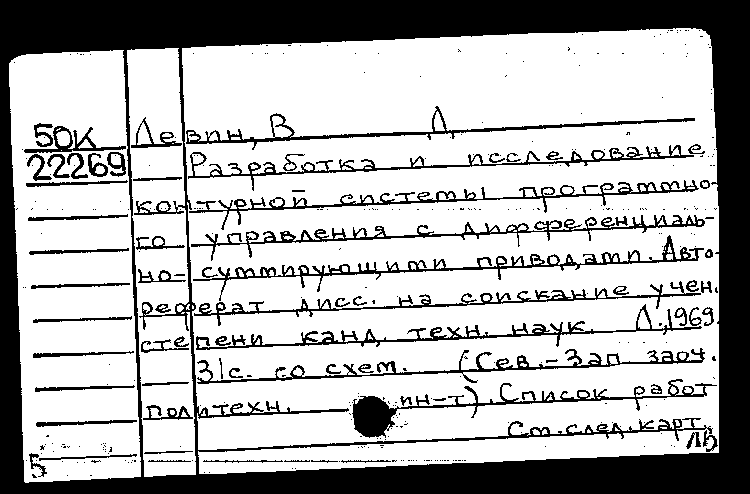 50К Левин, В Л
22269 Разработка и исследование
контурной системы программно-
го управления с дифференциаль-
но-суммирующими приводами. Авто-
реферат дисс. на соискание учен.
степени канд. техн. наук. Л., 1969.
31с. со схем. (Сев.-Зап заоч.
политехн. ин-т). Список работ
См. след. карт.
5 ЛБ